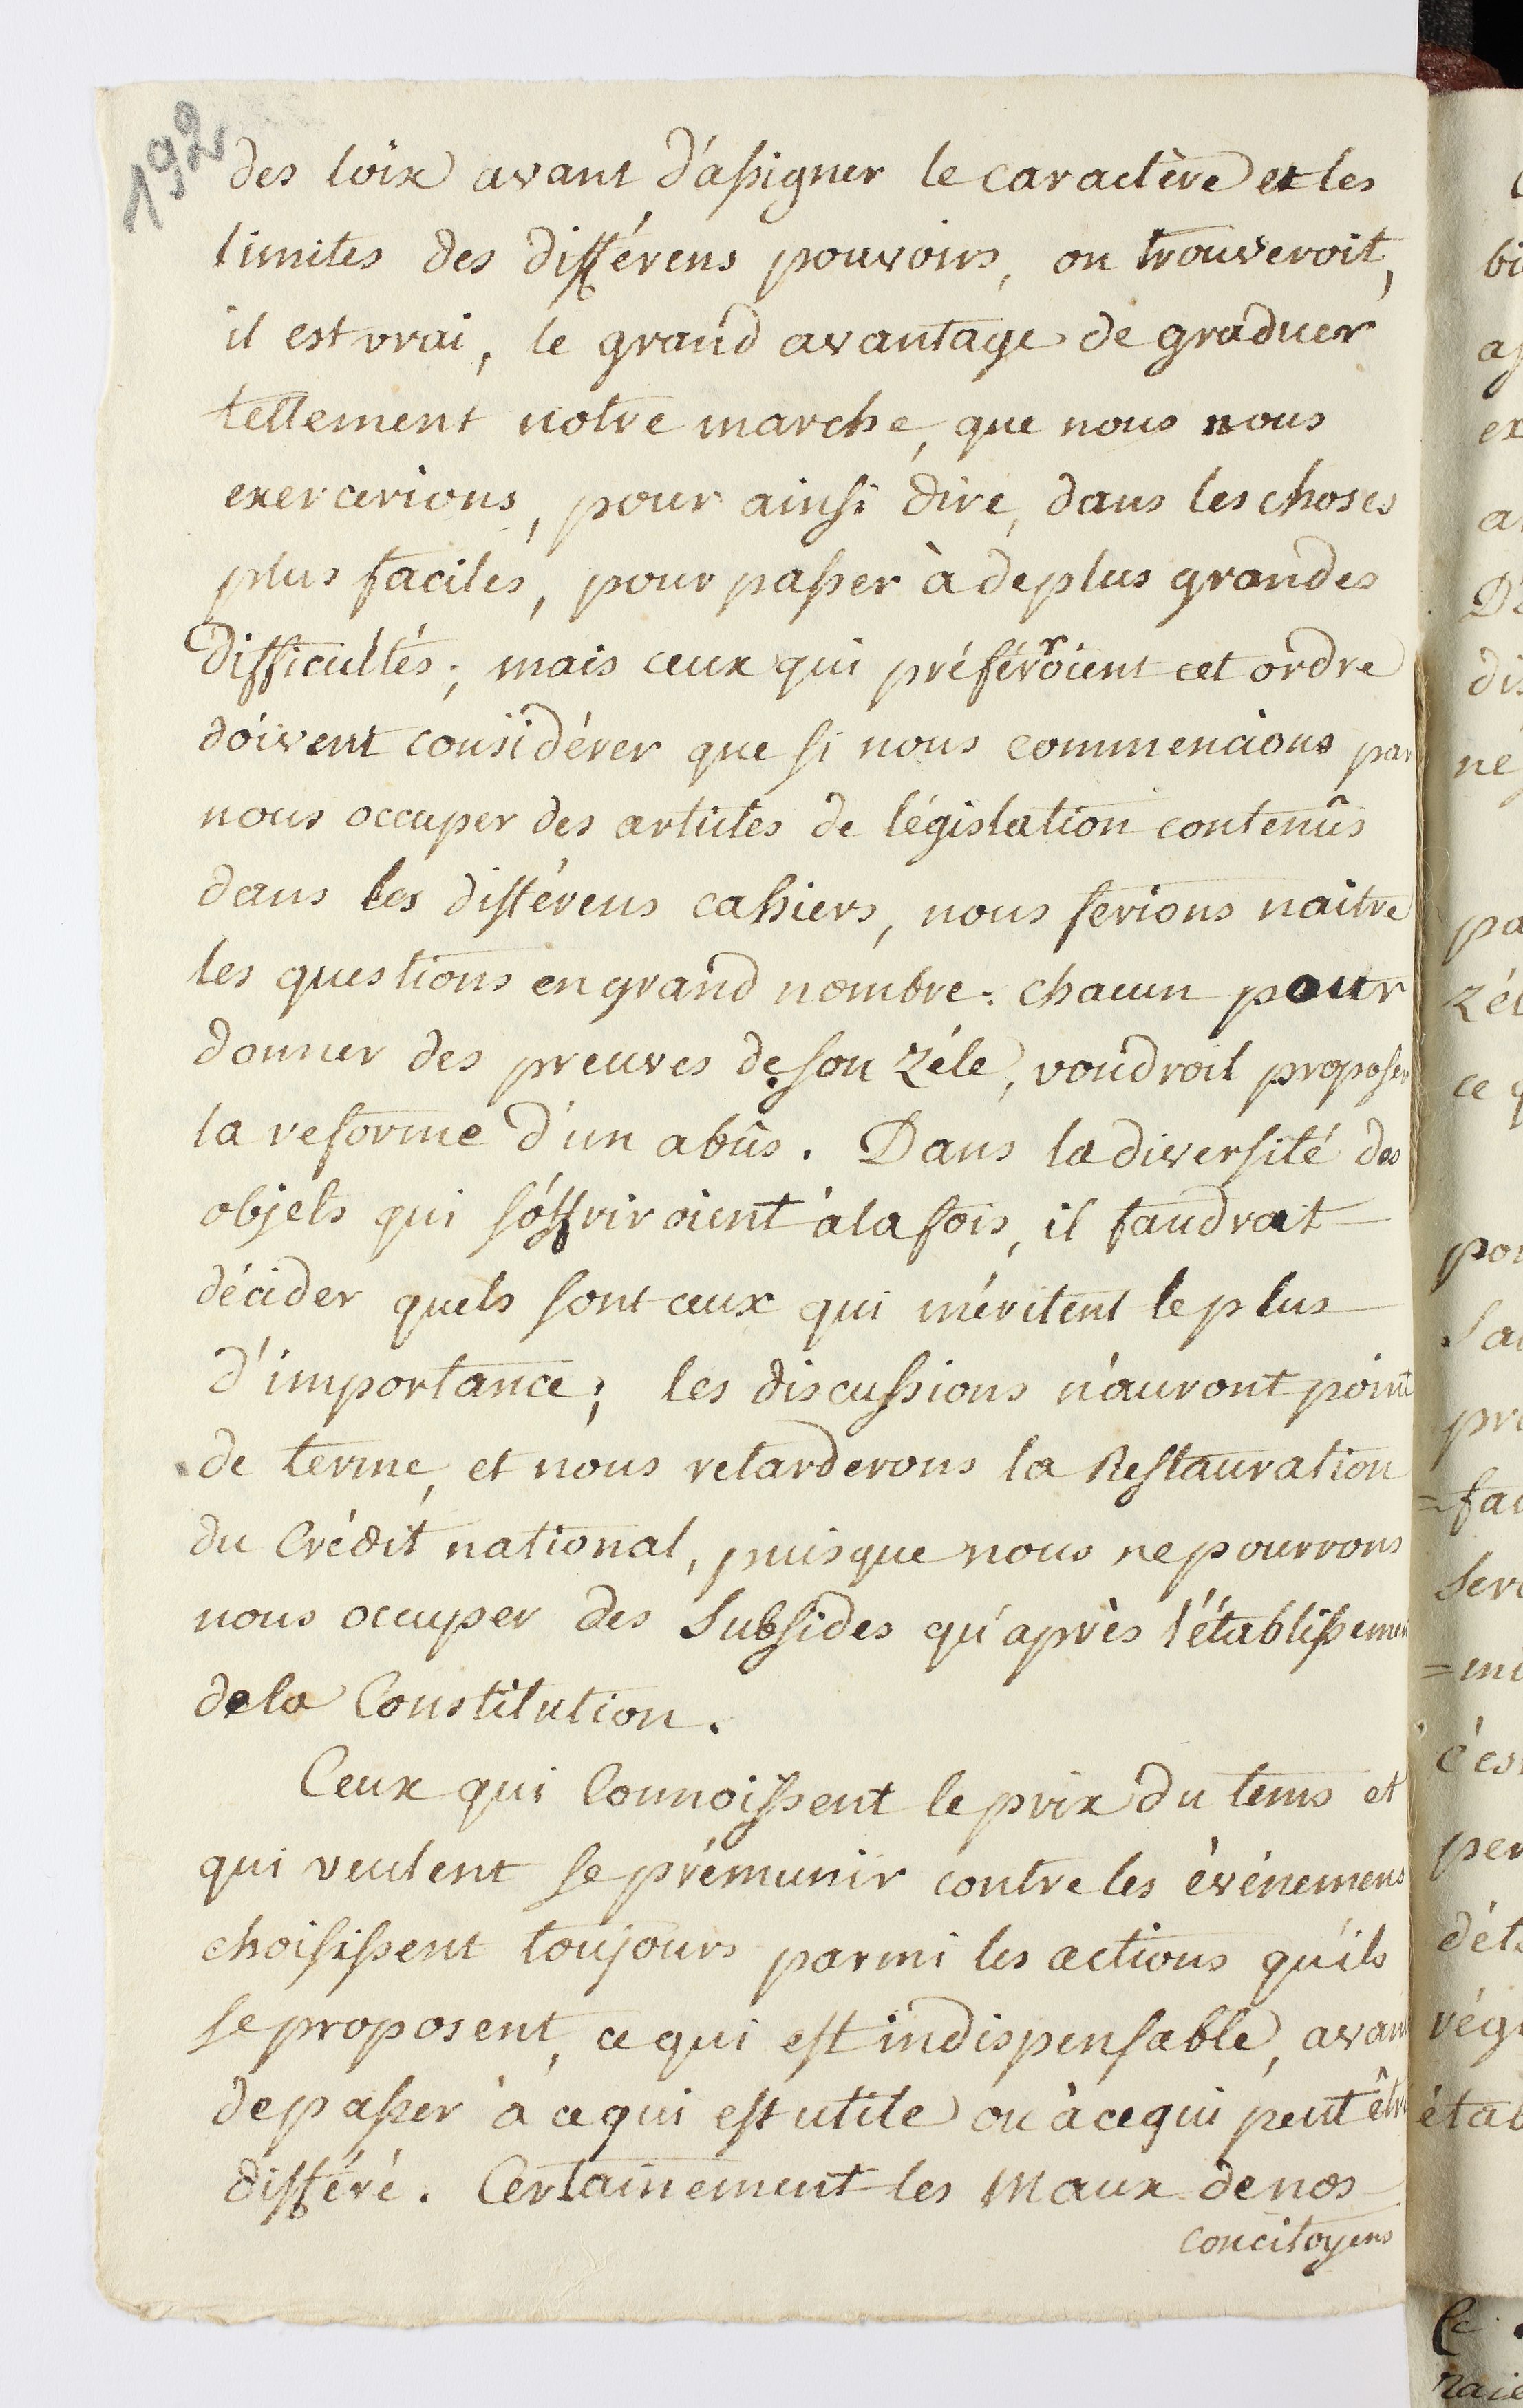 192
des loix avant d'assigner le caractère et les
limites des différens pouvoirs, on trouveroit,
il est vrai, le grand avantage de graduer
tellement notre marche, que nous nous
exercerions, pour ainsi dire, dans les choses
plus faciles, pour passer à de plus grandes
difficultés; mais ceux qui préférroient cet ordre
doivent considérer que si nous commencions par
nous occuper des articles de législation contenûs
dans les différens cahiers, nous ferions naitre
les questions en grand nombre: chacun pour
donner des preuves de son zéle, voudroit proposer
la reforme d'un abûs. Dans la diversité des
objets qui s'offriroient à la fois, il faudrait
décider quels sont ceux qui méritent le plus
d'importance; les discussions n'auront point
de terme, et nous retarderons la Restauration
du Crédit national, puisque nous ne pourrons
nous occuper des Subsides qu'après l'établissemen
de la Constitution.
Ceux qui Connoissent le prix du tems et
qui veulent se prémunir contre les événemens
choisissent toujours parmi les actions qu'ils
se proposent, ce qui est indispensable, avant
de passer à ce qui est utile ou à ce qui peut être
différé. Certainement les Maux de nos
concitoyens